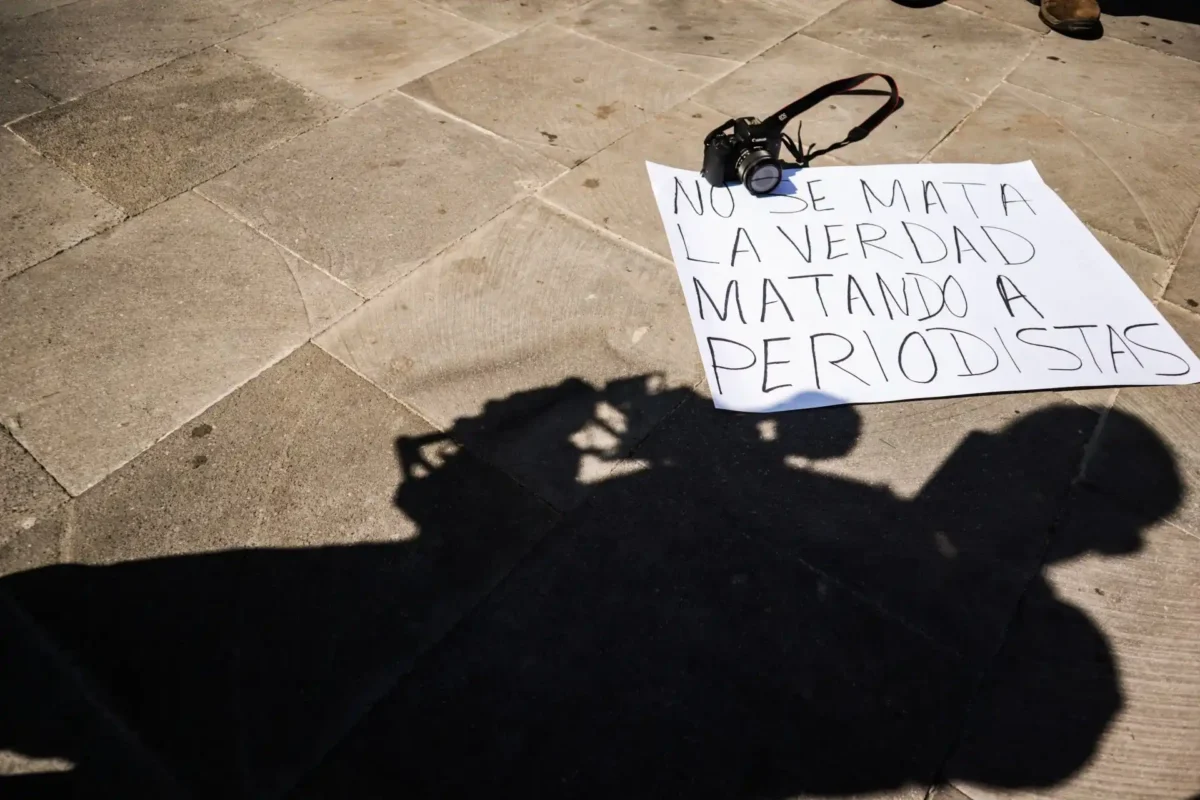 Canon
NO SE MATA
LA VERDAD
MATANDO A
PERIODISTAS